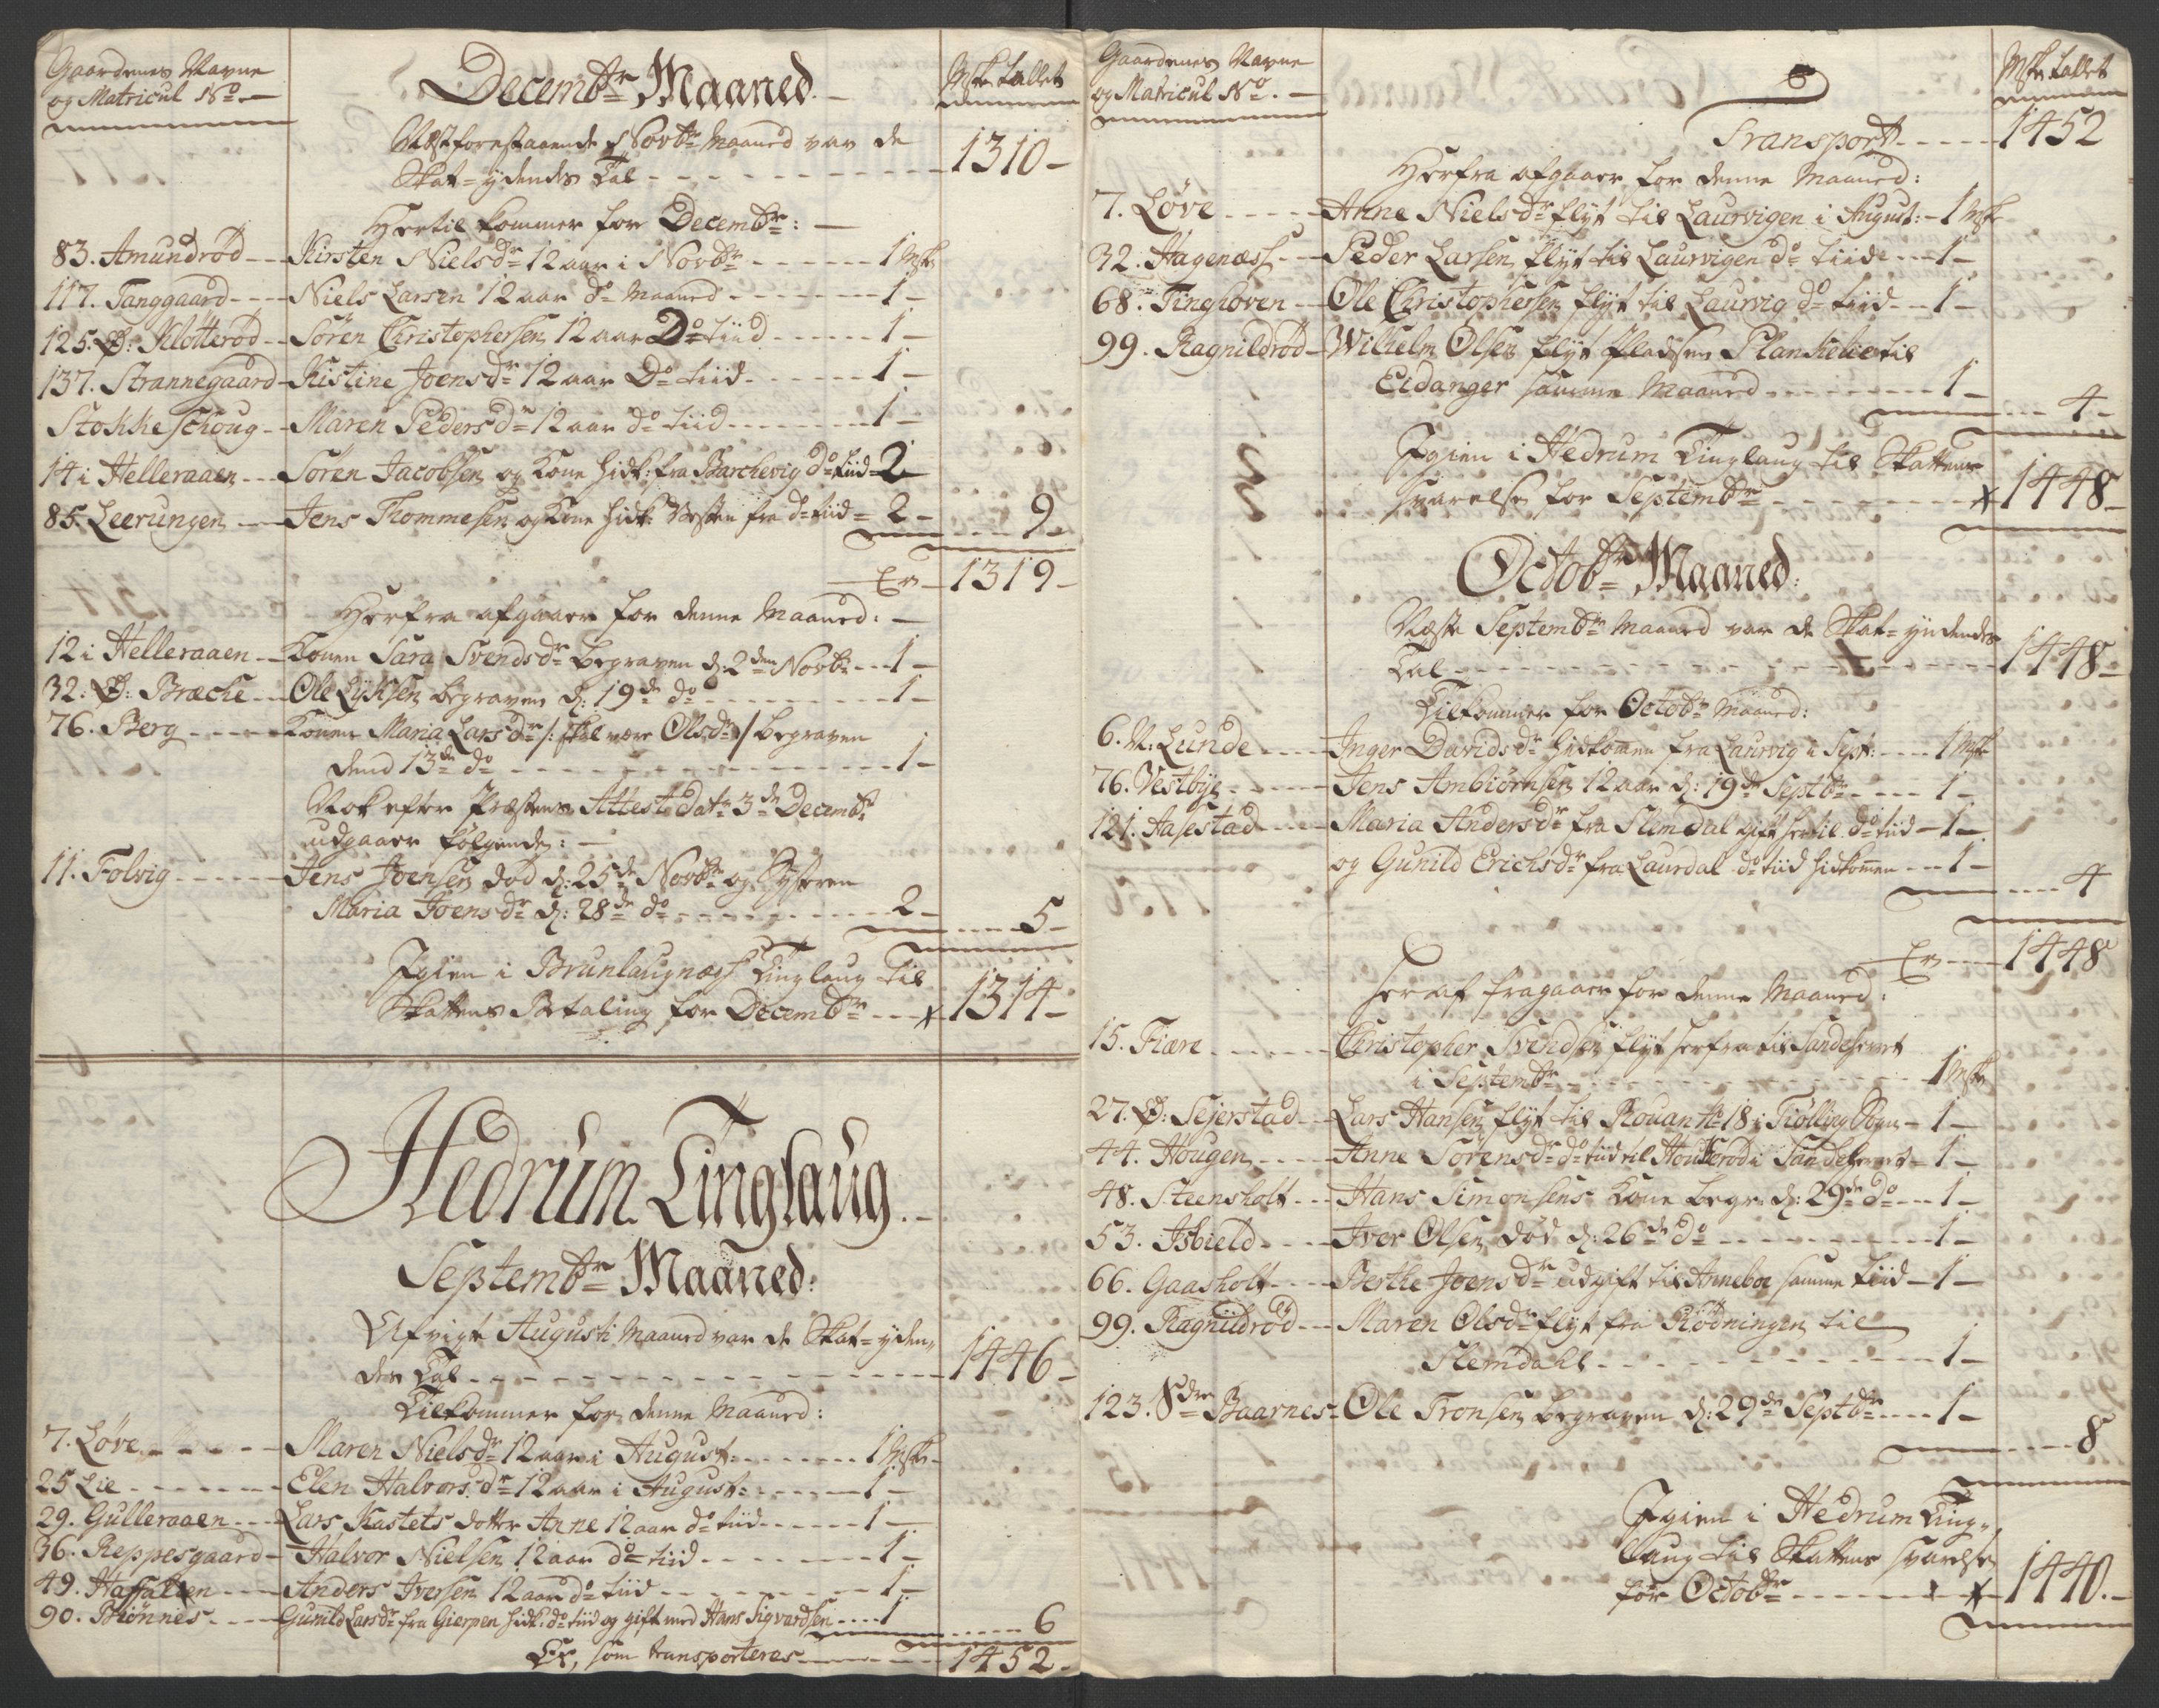 Gaardenes Navne
og Matricul No. —
Decembr Maaned. —
Msk tallet
Næstforestaaende Novbr Maaned var de
Skat=ydendes Tal - - - 1310 -
Hertil kommer for Decembr: —
83. Amundrød - - - Kirsten Nielsdr 12 aar i Novbr - - - 1 Msk
117. Tanggaard - - - Niels Larsen 12 aar do Maaned - - - 1 -
125. Ø: Kløtterød - - Sören Christophersen 12 aar Do tiid - - - 1 -
137. Strannegaard - Kistine Joensdr 12 aar Do tiid - - - 1 -
Stokke schoug - - Maren Pedersdr 12 aar do tiid - - - 1 -
14 i Helleraaen - - - Sören Jacobsen og Kone hidk: fra Barchevig do tiid = 2
85. Leerungen - - - Jens Thommesen og Kone hidk: Vesten fra do tiid = 2 - 9 -
Er - 1319 -
Herfra afgaaer for denne Maaned: —
12 i Helleraaen - - Konen Sara Svendsdr begraven d: 2den Novbr - - - 1 -
32. Ø: Bræche - - - Ole Lychsen begraven d: 19de do - - - 1 -
76. Berg - - - Konen Maria Larsdr /: skal være Olsdr :/ begraven
dend 13de do - - - 1 -
Nok efter Præstens Attest dat: 3de Decembr
udgaaer følgende: —
11. Folvig - - - Jens Joensen død d: 25de Novbr og Systeren
Maria Joensdr d: 28de do - - - 2 - 5 -
Igien i Brunlaugnæss Tinglaug til
Skattens Betaling for Decembr - - - 1314 -
Hedrum Tinglaug. -
Septembr Maaned:
Afvigt Augusti Maaned var de Skat=yden„
des Tal - - - 1446 -
Tilkommer for denne Maaned:
7. Løve - - - Maren Nielsdr 12 aar i August: - - - 1 Msk
25 Lie - - - Elen Halvorsdr 12 aar i August: - - - 1 -
29. Gulleraaen - - - Lars Kastets dotter Anne 12 aar do tiid - - - 1 -
36. Reppesgaard - Halvor Nielsen 12 aar do tiid - - - 1 -
49. Haffallen - - - Anders Iversen 12 aar do tiid - - - 1 -
90. Biönnes - - - Gunild Larsdr fra Gierpen hidk: do tiid og gift med Hans Sigvardsen - - - 1 6
Er, som transporteres - - - 1452 -
Gaardenes Navne
og Matricul No. —
Msk tallet
Transport - - - 1452
Herfra afgaaer for denne Maaned:
7. Løve - - - Anne Nielsdr flyt til Laurvigen i August: - 1 Msk
32. Hagenæss - - - Peder Larsen flyt til Laurvigen do tiide - - - 1 -
68. Tinghoven - - Ole Christophersen flyt til Laurvig do tiid - - - 1 -
99. Ragnildrød - Wilhelm Olsen flyt Pladsen Plankelie til
Eidanger samme Maaned - - - 1 - 4 -
Igien i Hedrum Tinglaug til Skattens
svarelse for Septembr - - - 1448 -
Octobr Maaned:
Næste Septembr Maaned var de Skat=yndendes
Tal - - - 1448 -
Tilkommer for Octobr Maaned:
6. N: Lunde - - - Inger Davidsdr hidkommen fra Laurvig i Sept: - - - 1 Msk
76. Vestbye - - - Jens Ambiörnsen 12 aar d: 19de Septbr - - - 1 -
121. Aasestad - - - Maria Andersdr fra Slemdal gift hertil do tiid - 1 -
og Gunild Erichsdr fra Laurdal do tiid hidkommen - - - 1 - 4
Er - - - 1448
Heraf fragaaer for denne Maaned:
15. Fiære - - - Christopher Svendsen flyt herfra til Sandeherret
i Septembr - - - 1 Msk
27. Ø: Sejerstad - - Lars Hansen flyt til Rouan No 18 i Tiølling Sogn - 1 -
44. Hougen - - - Anne Sörensdr do tiid til Houkerød i Sandeherret - 1 -
48. Steensholt - - - Hans Simonsens Kone begr: d: 29de do - - - 1 -
53. Isbield - - - Iver Olsen død d: 26de do - - - 1 -
66. Gaasholt - - - Berthe Joensdr udgift til Anneboe samme tiid - 1 -
99. Ragnildrød - - Maren Olsdr flyt fra Rödningen til
Slemdahl - - - 1 -
123. Sdre Baarnes - Ole Tronsen begraven d: 29de Septbr - - - 1 - 8
Igien i Hedrum Ting„
laug til Skattens svarelse
for Octobr - - - 1440. -